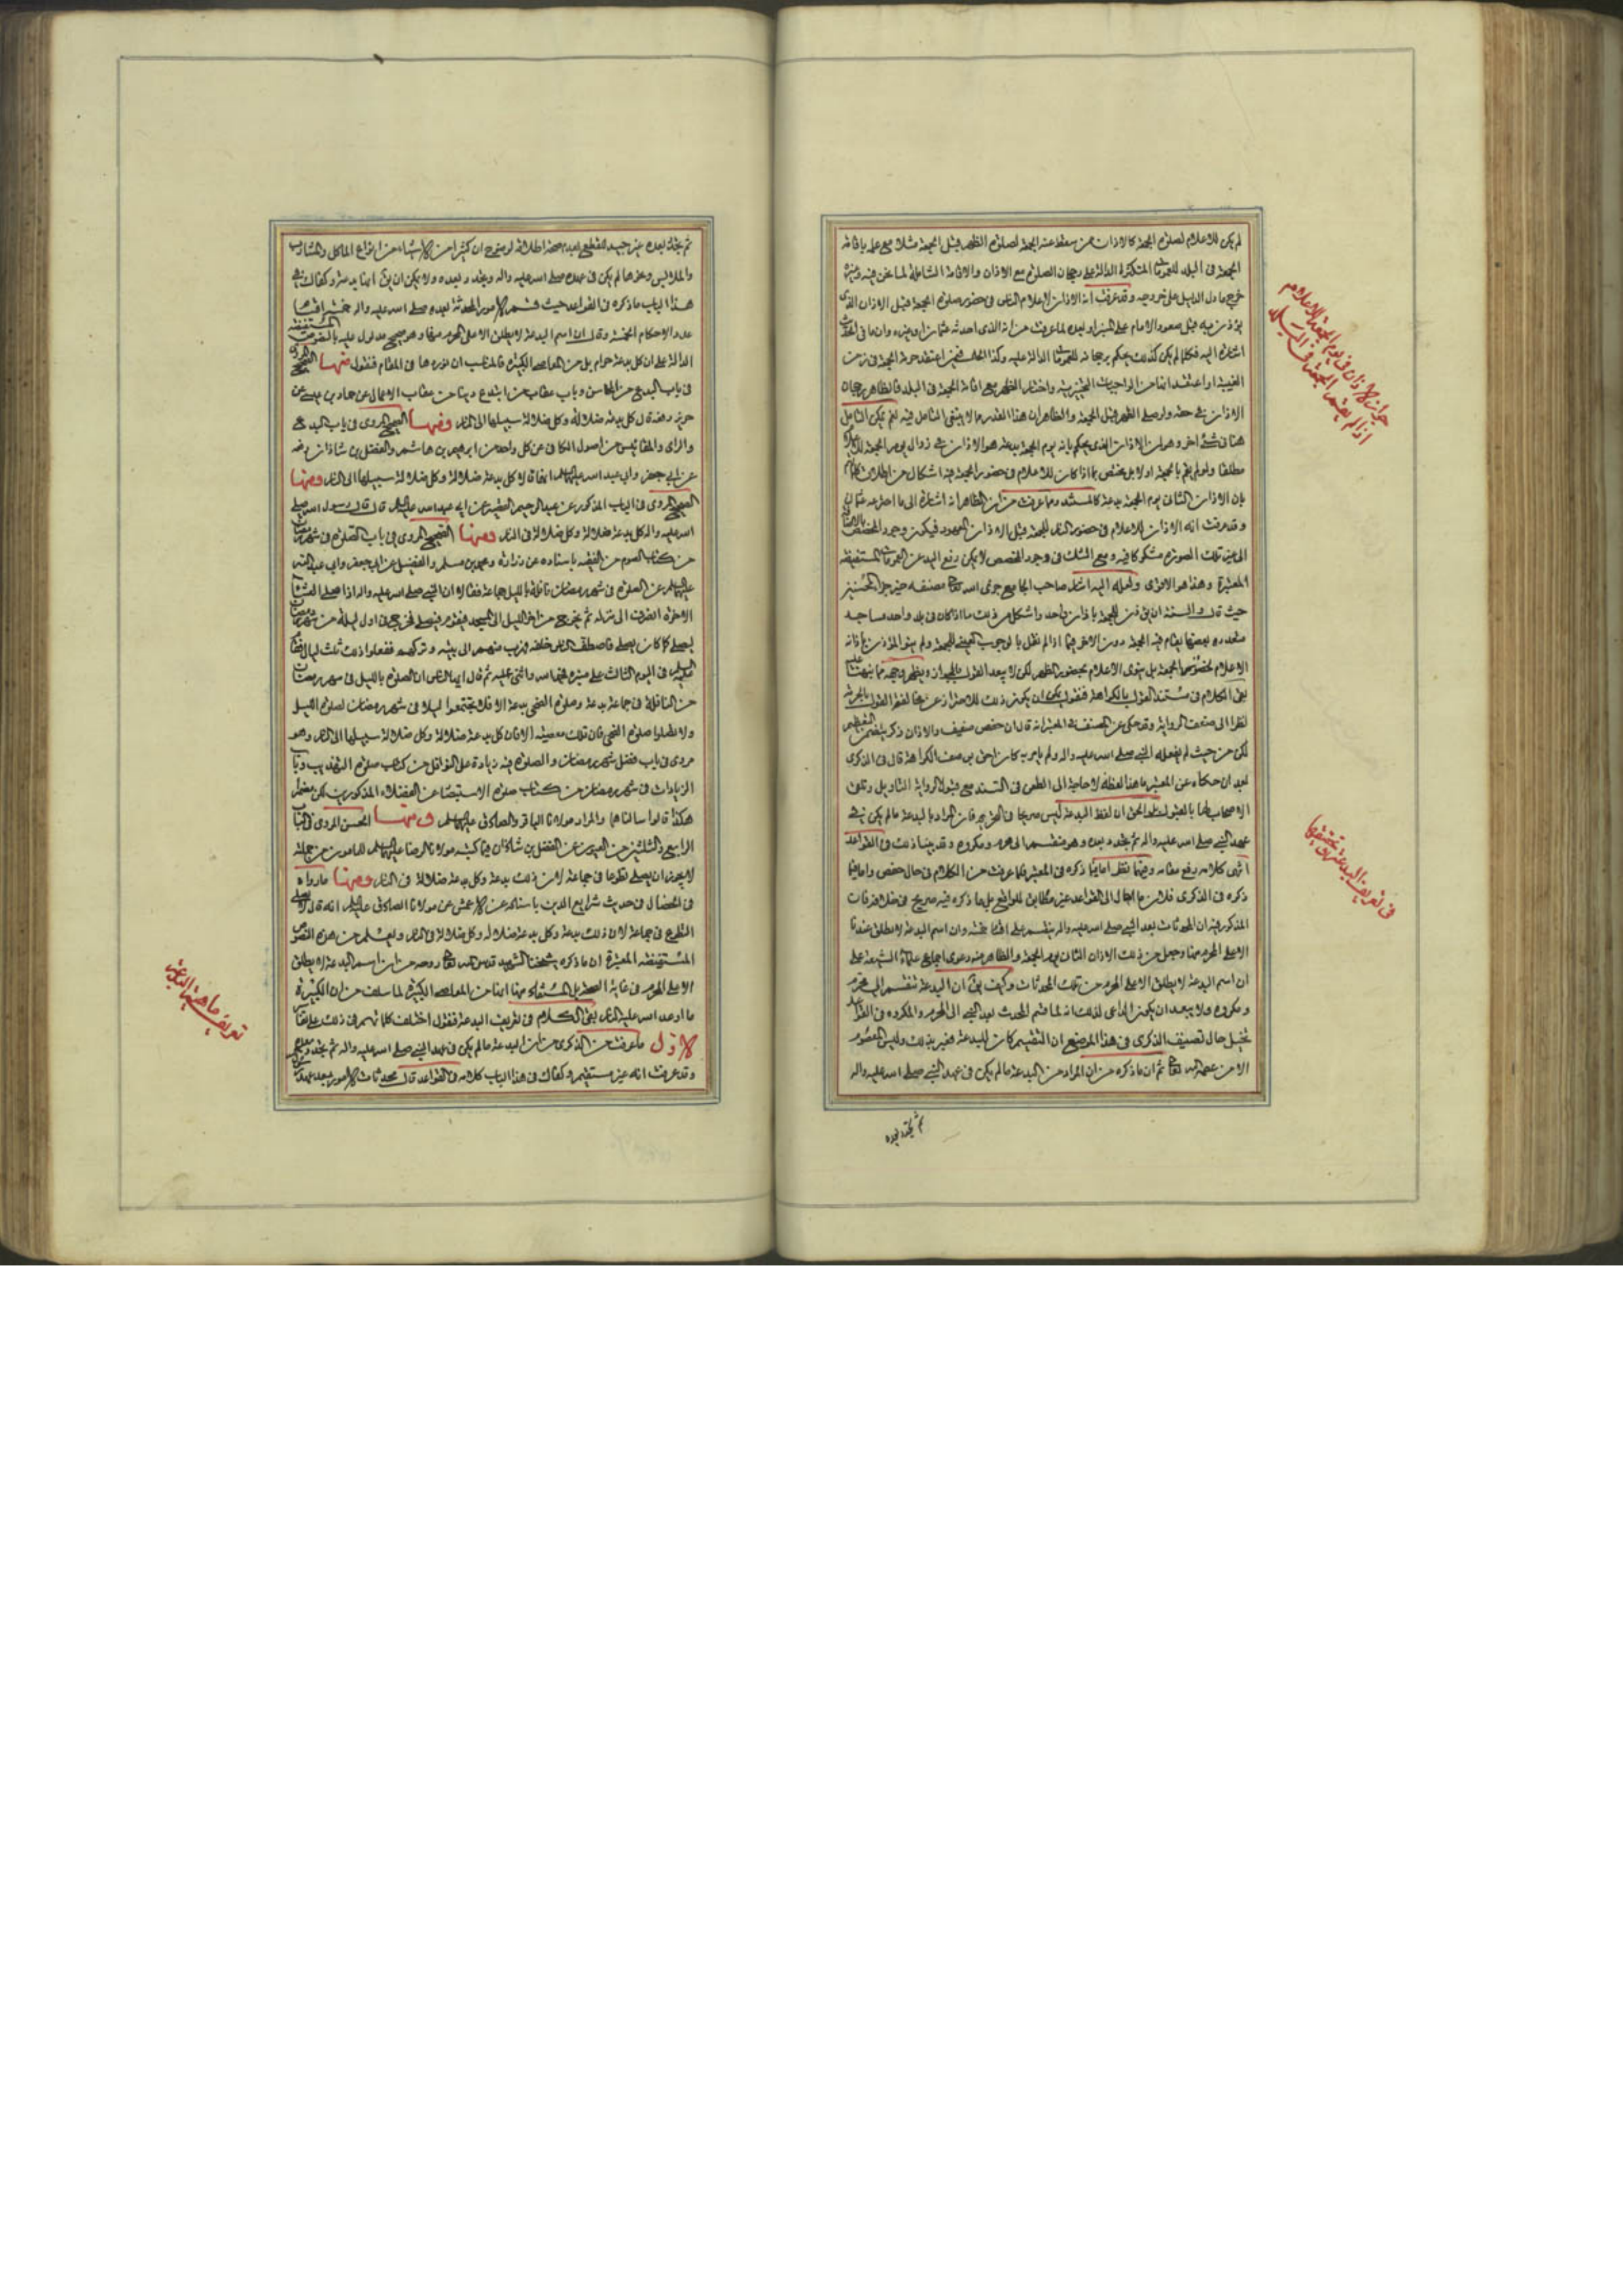 لم يكن للاعلام لصلوة الجمعة كالاذان من سقط عنه الجمعة لصلوة الظهر قبل الجمعة مثلا مع علمه باقامة
الجمعة فى البلد للعمومات المتكثرة الدالة على رجحان الصلوة مع الاذان والاقامة الشاملة لما نحن فيه
خرج ما دل الدليل على خروجه وقد عرفت ان الاذان لاعلام الناس فى حضور صلوة الجمعة قبل الاذان الذى
يؤذن به قبل صعود الامام على المنبر او بعده لما عرفت من انه الذى احدثه عثمان او غيره وان ما فى
اشارة اليه فكلما لم يكن كذلك يحكم برجحانه للعمومات الدالة عليه وكذا الحال فيمن اعتقد حرمة الجمعة فى زمن
الغيبة او اعتقد انها من الواجبات التخييرية واختار الظهر مع اقامة الجمعة فى البلد فالظاهر رجحان
الاذان فى حقه ولو صلى الظهر قبل الجمعة والظاهر ان هذا القدر مما لا ينبغى التامل فيه نعم يمكن التامل
هنا فى شئ اخر وهو ان الاذان الذى يحكم بانه يوم الجمعة بدعة هو الاذان فى زوال يوم الجمعة
مطلقا ولو لم يقم بالجمعة اولا بل يختص بما اذا كان للاعلام فى حضور الجمعة فيه اشكال من اطلاق
بان الاذان الثانى يوم الجمعة بدعة كالمستند ومما عرفت من ان الظاهر انه اشارة الى ما احدثه عثمان
وقد عرفت انه الاذان للاعلام فى حضور الناس للجمعة قبل الاذان المعهود فيكون وجود المخصص
الى غير تلك الصورة مشكوكا فيه ومع الشك فى وجود المخصص لا يمكن رفع اليد عن العمومات المستفيضة
المعتبرة وهذا هو الاقوى ولعله اليه اشار صاحب الجامع جزى الله تعالى مصنفه خير جزاء المحسنين
حيث قال والسنة ان يؤذن للجمعة باذان واحد واشكل من ذلك ما اذا كان فى بلد واحد مساجد
متعددة بعضها يقام فيه الجمعة دون الاخر فيما اذا لم نقل بالوجوب العينى للجمعة ولم ينو المؤذن باذانه
الاعلام لحضور الجمعة بل ينوى الاعلام بحضور الظهر لكن لا يبعد القول بالجواز ويظهر وجهه مما نبهنا عليه
بقى الكلام فى مستند القول بالكراهة فنقول يمكن ان يكون ذلك للاحتراز عن مخالفة القول بالحرمة
نظرا الى ضعف الرواية وقد حكى عن المصنف فى المعتبر انه قال ان حفص ضعيف والاذان ذكر يتضمن التعظيم
لكن من حيث لم يفعله النبى صلى الله عليه واله ولم يامر به كان احق بوصف الكراهة قال فى الذكرى
بعد ان حكاه عن المعتبر ما هذا لفظه لا حاجة الى الطعن فى السند مع قبول الرواية التاويل وتلقى
الاصحاب لها بالقبول بل الحق ان لفظ البدعة ليس صريحا فى التحريم فان المراد بالبدعة ما لم يكن فى
عهد النبى صلى الله عليه واله ثم تجدد بعده وهو منقسم الى محرم ومكروه وقد بينا ذلك فى القواعد
انتهى كلامه رفع مقامه وفيهما نظر اما فيما ذكره فى المعتبر فلما عرفت من الكلام فى حال حفص واما فيما
ذكره فى الذكرى فلان ما احال الى القواعد غير مطابق للواقع بل ما ذكره فيه صريح فى خلافه فان
المذكور فيه ان المحدثات بعد النبى صلى الله عليه واله ينقسم على اقسام خمسة وان اسم البدعة لا يطلق عندنا
الا على المحرم منها وجعل من ذلك الاذان الثانى يوم الجمعة والظاهر منه دعوى اجماع علماء الشيعة على
ان اسم البدعة لا يطلق الا على المحرم من تلك المحدثات وكيف يق ان البدعة تنقسم الى محرم
ومكروه ولا يبعد ان يكون الداعى لذلك انه لما قسم المحدث بعد النبى الى المحرم والمكروه فى القواعد
تخيل حال تصنيف الذكرى فى هذا الموضع ان التقسيم كان للبدعة فعبر بذلك وليس المعصوم
الا من عصمه الله تعالى ثم ان ما ذكره من ان المراد من البدعة ما لم يكن فى عهد النبى صلى الله عليه واله
ثم تجدد بعده
جواز الاذان فى يوم الجمعة للاعلام
اذا لم يقم الجمعة فى البلد
فى تعريف البدعة وتحقيقها
ثم تجدد بعده غير جيد للقطع بعدم صحة اطلاقه لوضوح ان كثيرا من الاشياء من انواع الماكل والمشارب
والملابس ونحوها لم يكن فى عهده صلى الله عليه واله وتجدد بعده ولا يمكن ان يق انها بدعة وكفاك فى
هذا الباب ما ذكره فى القواعد حيث قسم الامور المحدثة بعده صلى الله عليه واله خمسة اقسام
عدد الاحكام الخمسة وقال ان اسم البدعة لا يطلق الا على المحرم منها وهو صحيح مدلول عليه بالنصوص المستفيضة
الدالة على ان كل بدعة حرام بل من المعاصى الكبيرة فالمناسب ان نوردها فى المقام فنقول منها الصحيح المروى
فى باب البدع من المحاسن وباب عقاب من ابتدع دينا من عقاب الاعمال عن حماد بن عيسى عن
حريز رفعه قال كل بدعة ضلالة وكل ضلالة سبيلها الى النار ومنها الصحيح المروى فى باب البدع
والراى والمقاييس من اصول الكافى عن كل واحد من ابرهيم بن هاشم والفضل بن شاذان رفعه
عن ابى جعفر وابى عبد الله عليهما السلام انهما قالا كل بدعة ضلالة وكل ضلالة سبيلها الى النار ومنها
الصحيح المروى فى الباب المذكور عن عبد الرحيم القصير عن ابى عبد الله عليه السلام قال قال رسول الله صلى
الله عليه واله كل بدعة ضلالة وكل ضلالة فى النار ومنها الصحيح المروى فى باب الصلوة فى شهر رمضان
من كتاب الصوم من الفقيه باسناده عن زرارة ومحمد بن مسلم والفضيل عن ابى جعفر وابى عبد الله
عليهما السلام عن الصلوة فى شهر رمضان نافلة بالليل جماعة فقالا ان النبى صلى الله عليه واله اذا صلى العشاء
الاخرة انصرف الى منزله ثم يخرج من اخر الليل الى المسجد فيقوم فيصلى فخرج فى اول ليلة من شهر رمضان
ليصلى كما كان يصلى فاصطف الناس خلفه فهرب منهم الى بيته وتركهم ففعلوا ذلك ثلث ليال فقام
فى اليوم الثالث على منبره فحمد الله واثنى عليه ثم قال ايها الناس ان الصلوة بالليل فى شهر رمضان
من النافلة فى جماعة بدعة وصلوة الضحى بدعة الا فلا تجتمعوا ليلا فى شهر رمضان لصلوة الليل
ولا تصلوا صلوة الضحى فان تلك معصية الا فان كل بدعة ضلالة وكل ضلالة سبيلها الى النار وهو
مروى فى باب فضل شهر رمضان والصلوة فيه زيادة على النوافل من كتاب صلوة التهذيب وباب
الزيادات فى شهر رمضان من كتاب صلوة الاستبصار عن الفضلاء المذكورين لكن مضمرا
هكذا قالوا سالناهما والمراد مولانا الباقر والصادق عليهما السلام ومنها الحسن المروى فى الباب
الرابع والثلثين من العيون عن الفضل بن شاذان فيما كتبه مولانا الرضا عليه السلام للمامون من جملته
لا يجوز ان يصلى تطوعا فى جماعة لان ذلك بدعة وكل بدعة ضلالة فى النار ومنها ما رواه
فى الخصال فى حديث شرايع الدين باسناده عن الاعمش عن مولانا الصادق عليه السلام انه قال لا يصلى
التطوع فى جماعة لان ذلك بدعة وكل بدعة ضلالة وكل ضلالة فى النار ويعلم من هذه النصوص
المستفيضة المعتبرة ان ما ذكره شيخنا الشهيد قدس الله تعالى روحه من ان اسم البدعة لا يطلق
الا على المحرم فى غاية الصحة بل المستفاد منها انها من المعاصى الكبيرة لما سلف من ان الكبيرة
ما اوعد الله عليه النار بقى الكلام فى تعريف البدعة فنقول اختلف كلماتهم فى ذلك على اقسام
الاول ما عرفت من الذكرى من ان البدعة ما لم يكن فى عهد النبى صلى الله عليه واله ثم تجدد بعده
وقد عرفت انه غير مستقيم وكفاك فى هذا الباب كلامه فى القواعد قال محدثات الامور بعد عهد
تعريف ماهية البدعة